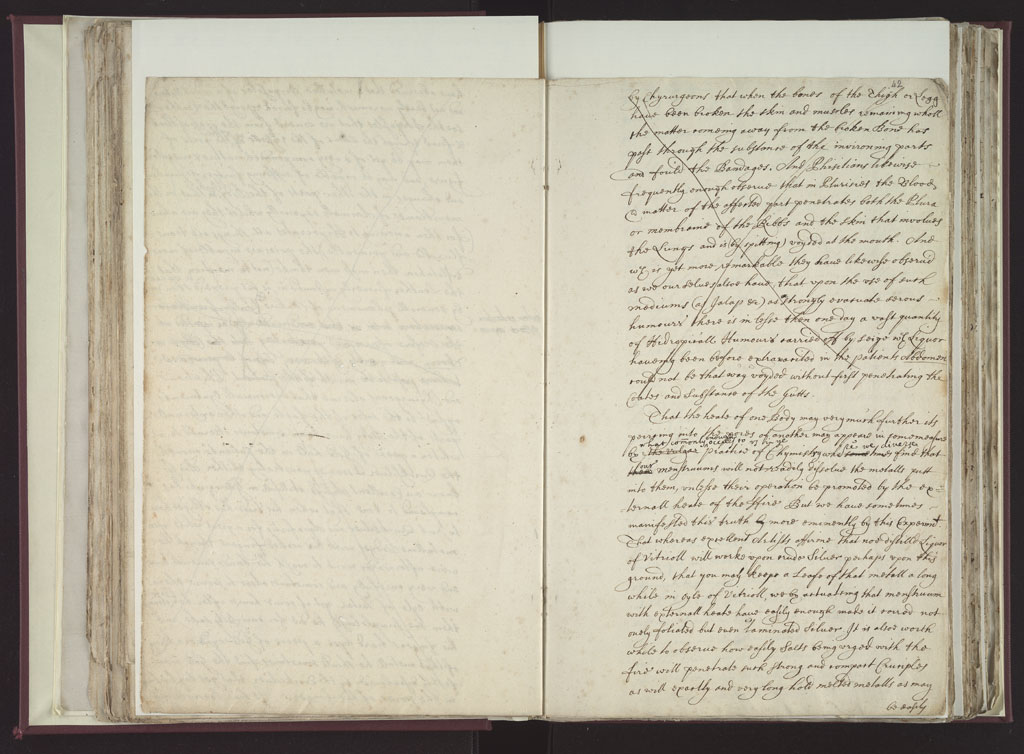 42
by Chyrurgeons that when the bones of the Thigh or Legg
have been broken the skin and muscles remaining whole
the matter comeing away from the broken bone has
past through the substance of the invironing parts
and fould the Bandages. And Phisitians likewise
frequently enough observe that in Plurisies the Blood
& matter of the affected part penetrates both the Plura
or membrane of the Ribbs and the skin that involves
the Lungs and is (by spitting) voyded at the mouth. And
wch is yet more remarkable they have likewise observd
as we our selves alsoe have, that upon the use of such
mediums (as Jalap &c) as strongly evacuate serous
humours there is in lesse then one day a vast quantity
of Hidropicall Humours carried off by seige wch Liquor
haveing been before extravasated in the patients Abdomen
could not be that way voyded without first penetrating the
Coates and substance of the Gutts.
That the heate of one Body may very much further its
peircing into the pores of another may appear in some measure
what comonly occurs to us in ye
by the vulgar practice of Chymistry where we diverse times find that
our
them menstruums will not readily dissolve the metalls putt
into them, unlesse their operation be promoted by the ex-
ternall heate of the ffire But we have sometimes
manifested this truth more eminently by this Experimt
That whereas excellent Artists affirme that noe distilld Liquor
of Vitrioll will worke upon crude Silver perhaps upon this
ground, that you may keepe a Leafe of that metall a long
while in oyle of Vitrioll, we by actuateing that menstruum
with externall heate have easily enough made it corode not
onely foliated but even Laminated Silver. It is alsoe worth
while to observe how easily Salts being urged with the
fire will penetrate such strong and compact Crusibles
as will exactly and very long hold melted metalls as may
be easily